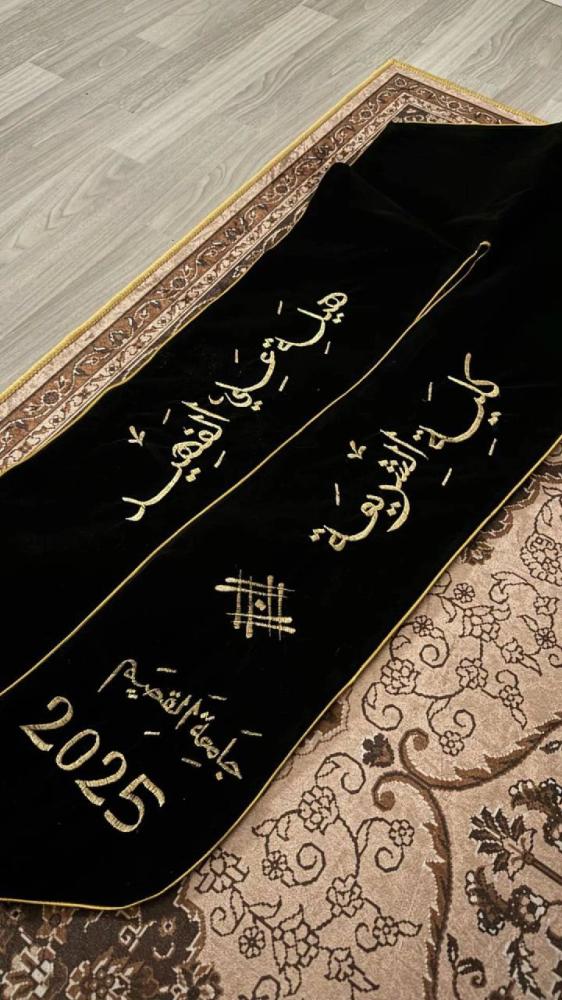 هيلة علي الفهيد
كلية الشريعة
جامعة القصيم
2025